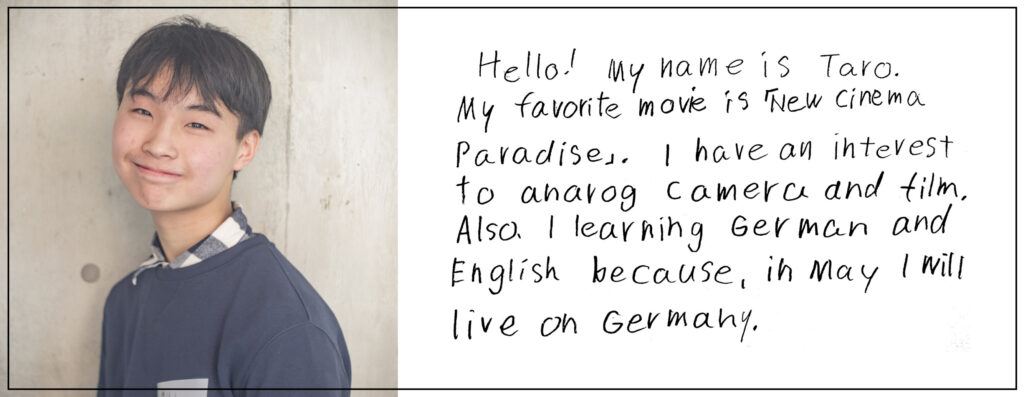 Hello! My name is Taro.
My favorite movie is 「New cinema
Paradise」. I have an interest
to anarog camera and film.
Also. I learning German and
English because, in May I will
live on Germany.